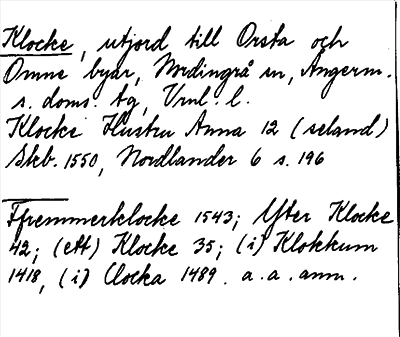 Klocke, utjord till Orsta och
Omne byar, Nordingrå sn, Ångerm.
s. doms. tg, Vrnl. l.
Klocke Hustru Anna 12 (seland)
Skb. 1550, Nordlander 6 s. 196
Ffremmerklocke 1543; Yter Klocke
42; (ett) Klocke 35; (i) Klokkum
1418, (i) Clocka 1489. a.a. anm.